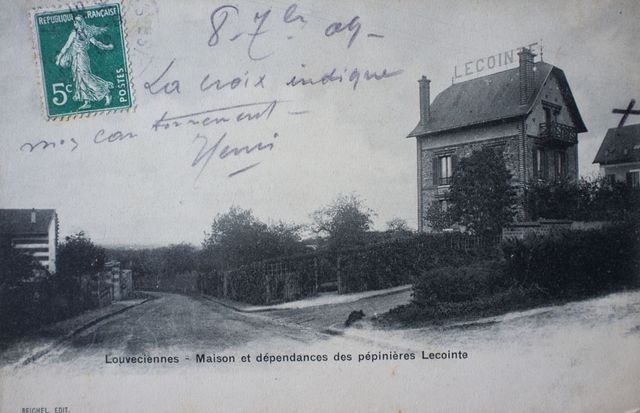 REPUBLIQUE FRANÇAISE
5c
POSTES
8-7bre 09-
LECOINTE
La croix indique
mon cantonnement-
Henri
Louveciennes - Maison et dépendances des pépinières Lecointe
REIGHEL, EDIT.